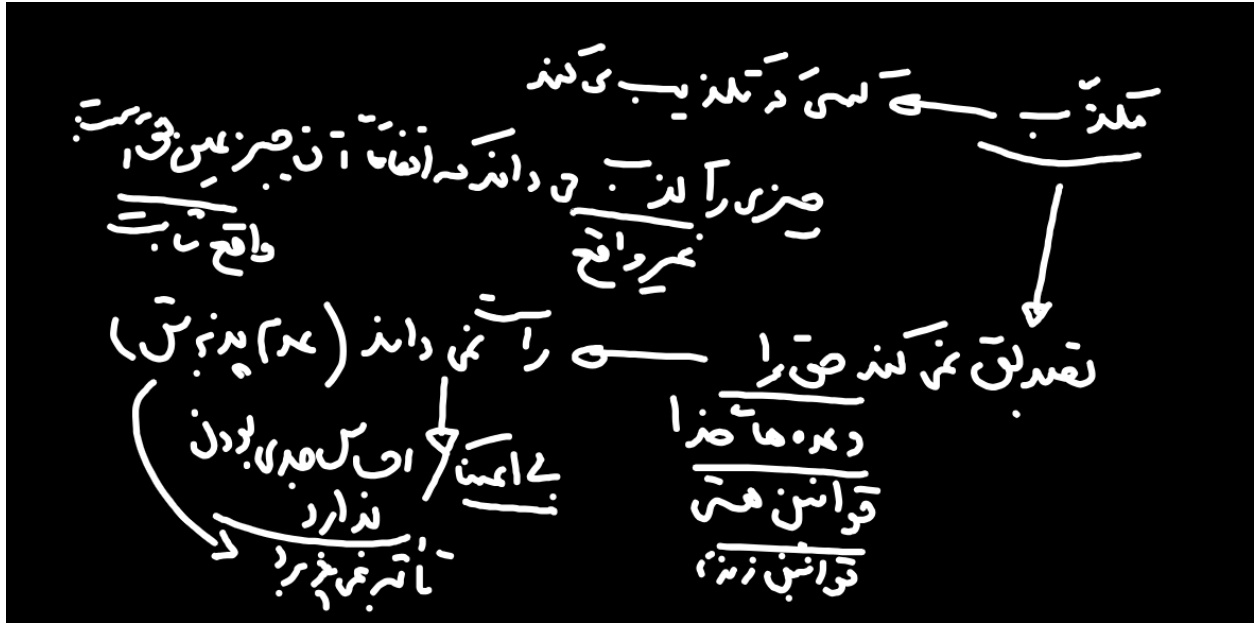 مکذّب ← کسی که تکذیب می کند
چیزی را کذب می داند که اتفاقاً آن چیز عین حق است
غیر واقع
واقع ثابت
تصدیق نمی کند حق را ← راست نمی داند (عدم پذیرش)
وعده های خدا
قوانین هستی
قوانین زندگی
بی اعتنا / احساس جدی بودن
ندارد
تأثیر نمی پذیرد